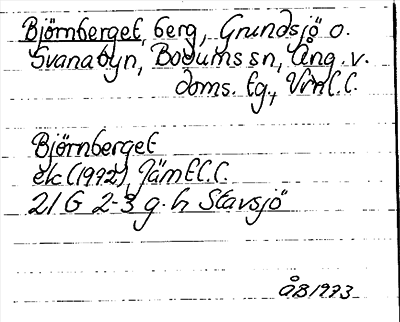 Björnberget, berg, Grundsjö o.
Svanabyn, Bodums sn, Ång. v.
doms. tg., Vnl.l.
Björnberget
ek (1972), Jämtl.l.
21 G 2-3 g.h Stavsjö
ÅB 1973